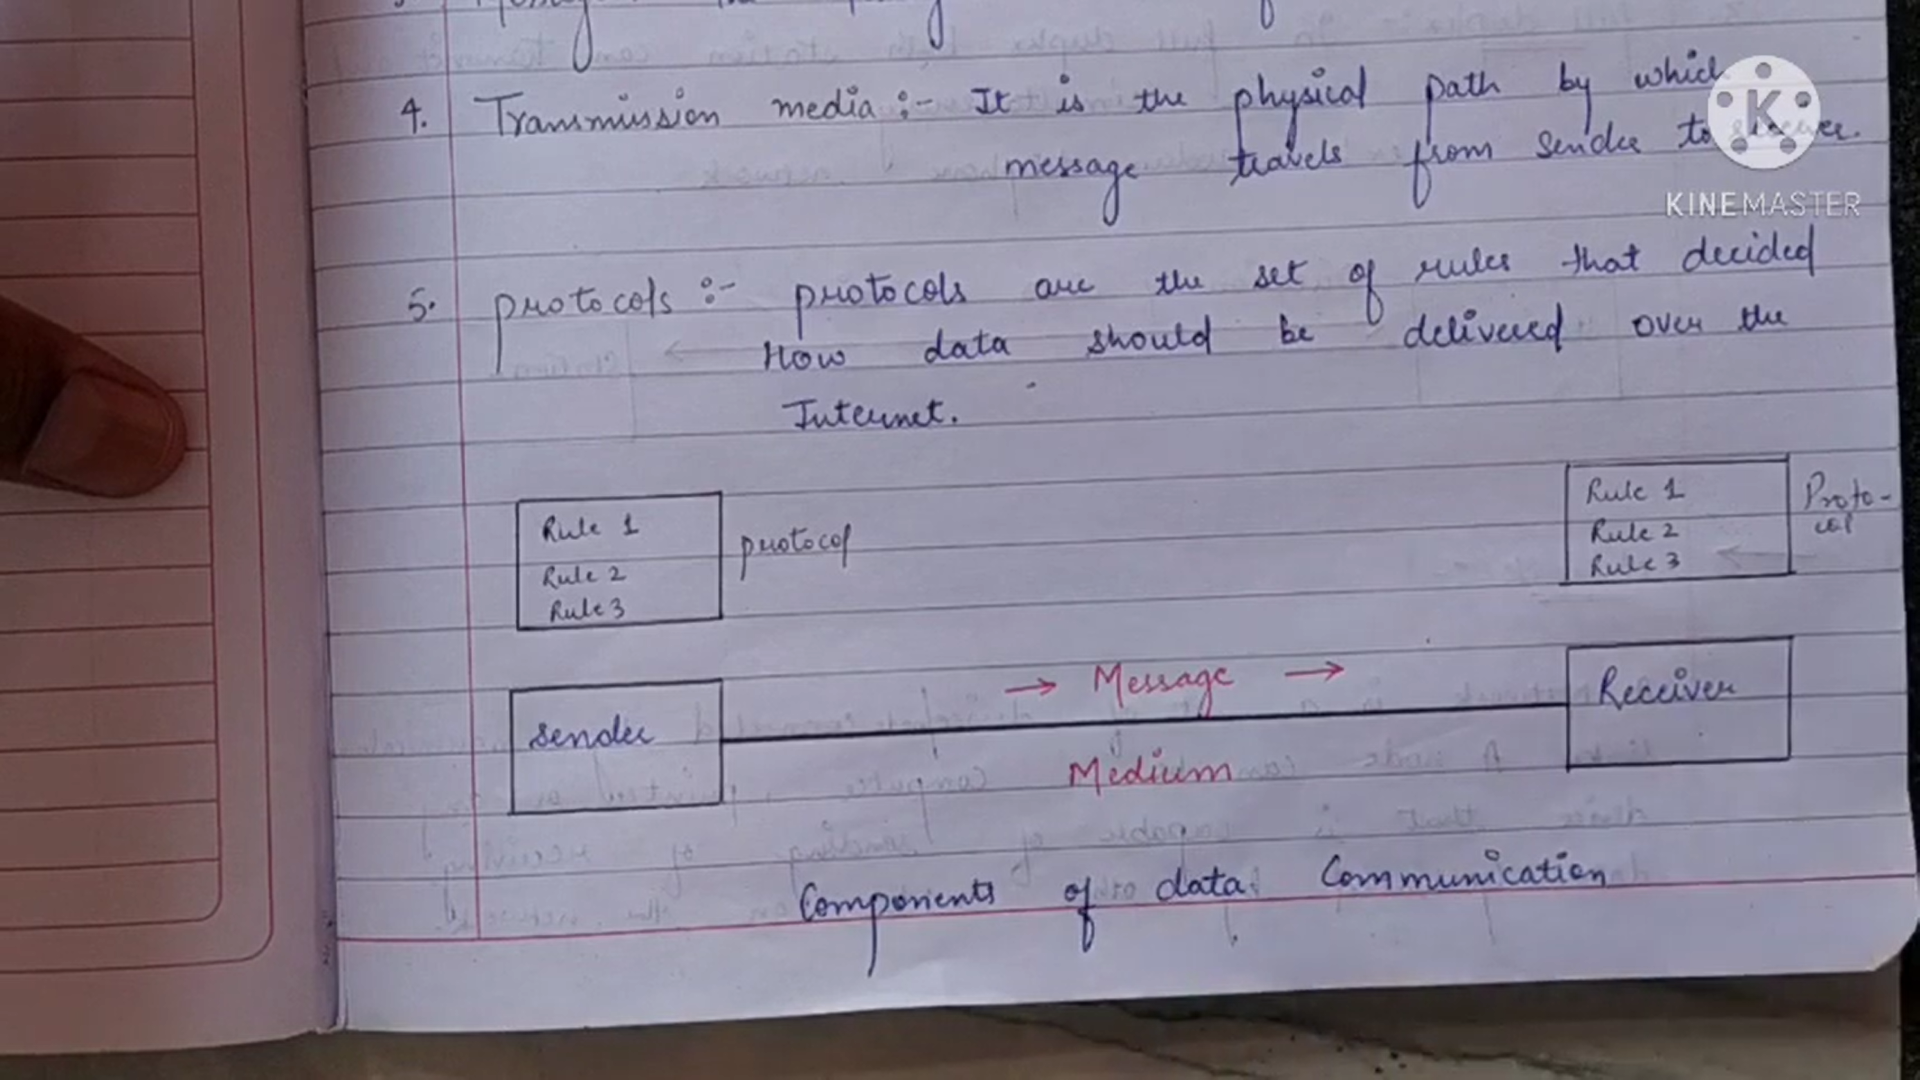 4. Transmission media :- It is the physical path by which
message travels from sender to receiver.
KINEMASTER
5. protocols :- protocols are the set of rules that decided
How data should be delivered over the
Internet.
Rule 1
Rule 2
Rule 3
protocol
Rule 1
Rule 2
Rule 3
Proto-
col
sender
→ Message →
Medium
Receiver
Components of data Communication